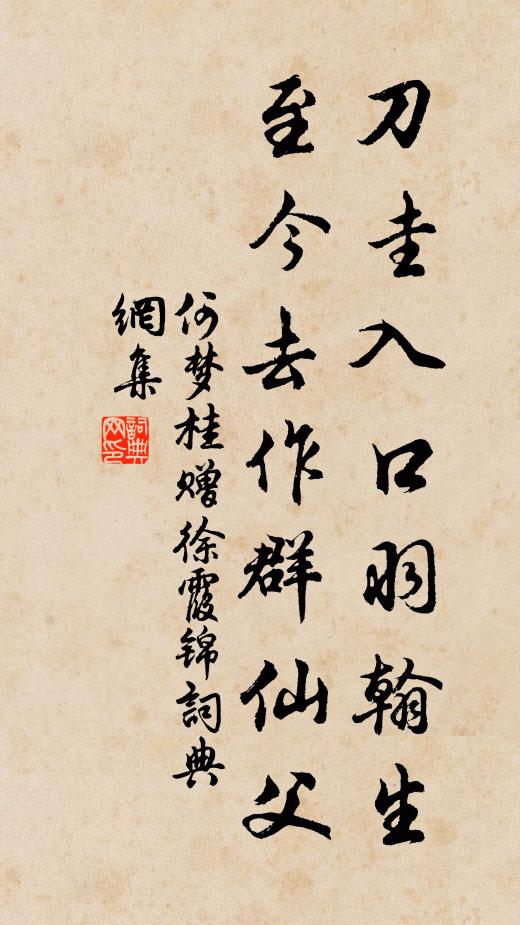 刀圭入口羽翰生
至今去作群仙父
何梦桂赠徐霞锦詞典
網集
詞典网印